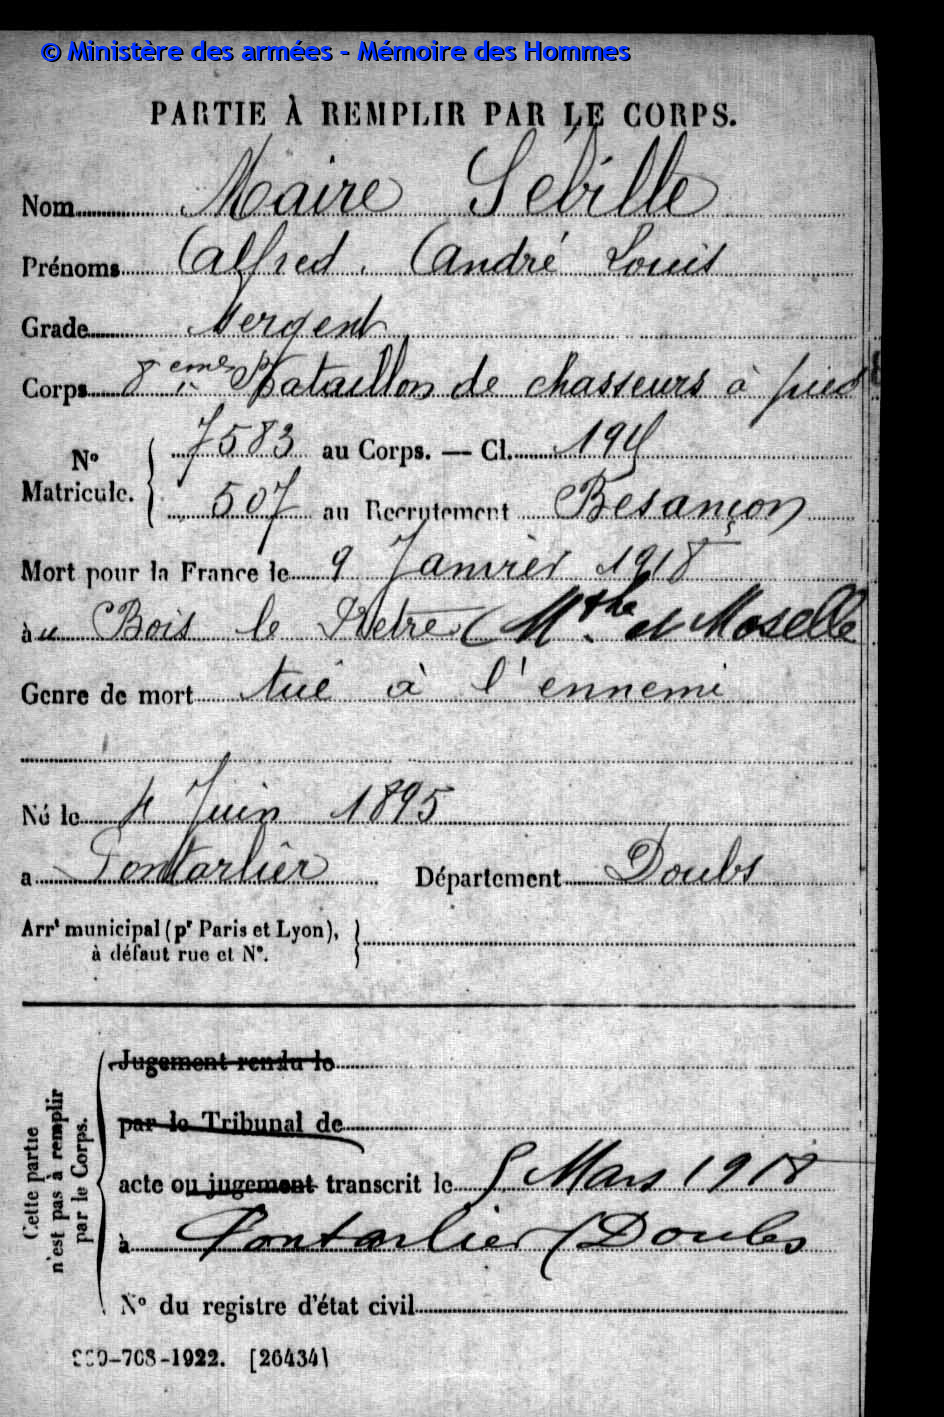 © Ministère des armées - Mémoire des Hommes
PARTIE À REMPLIR PAR LE CORPS.
Nom Maire Sébille
Prénoms Alfred, André Louis
Grade Sergent
Corps 8eme Bataillon de chasseurs à pied
N° Matricule. 7583 au Corps. — Cl. 1915
507 au Recrutement Besançon
Mort pour la France le 9 Janvier 1918
à u Bois le Prêtre (Mthe et Moselle
Genre de mort tué à l'ennemi
Né le 4 Juin 1895
a Pontarlier Département Doubs
Arrt municipal (pr Paris et Lyon),
à défaut rue et N°.
Cette partie n'est pas à remplir par le Corps.
Jugement rendu le
par le Tribunal de
acte ou jugement transcrit le 5 Mars 1918
à Pontarlier (Doubs
N° du registre d'état civil
-708-1922. [26434]